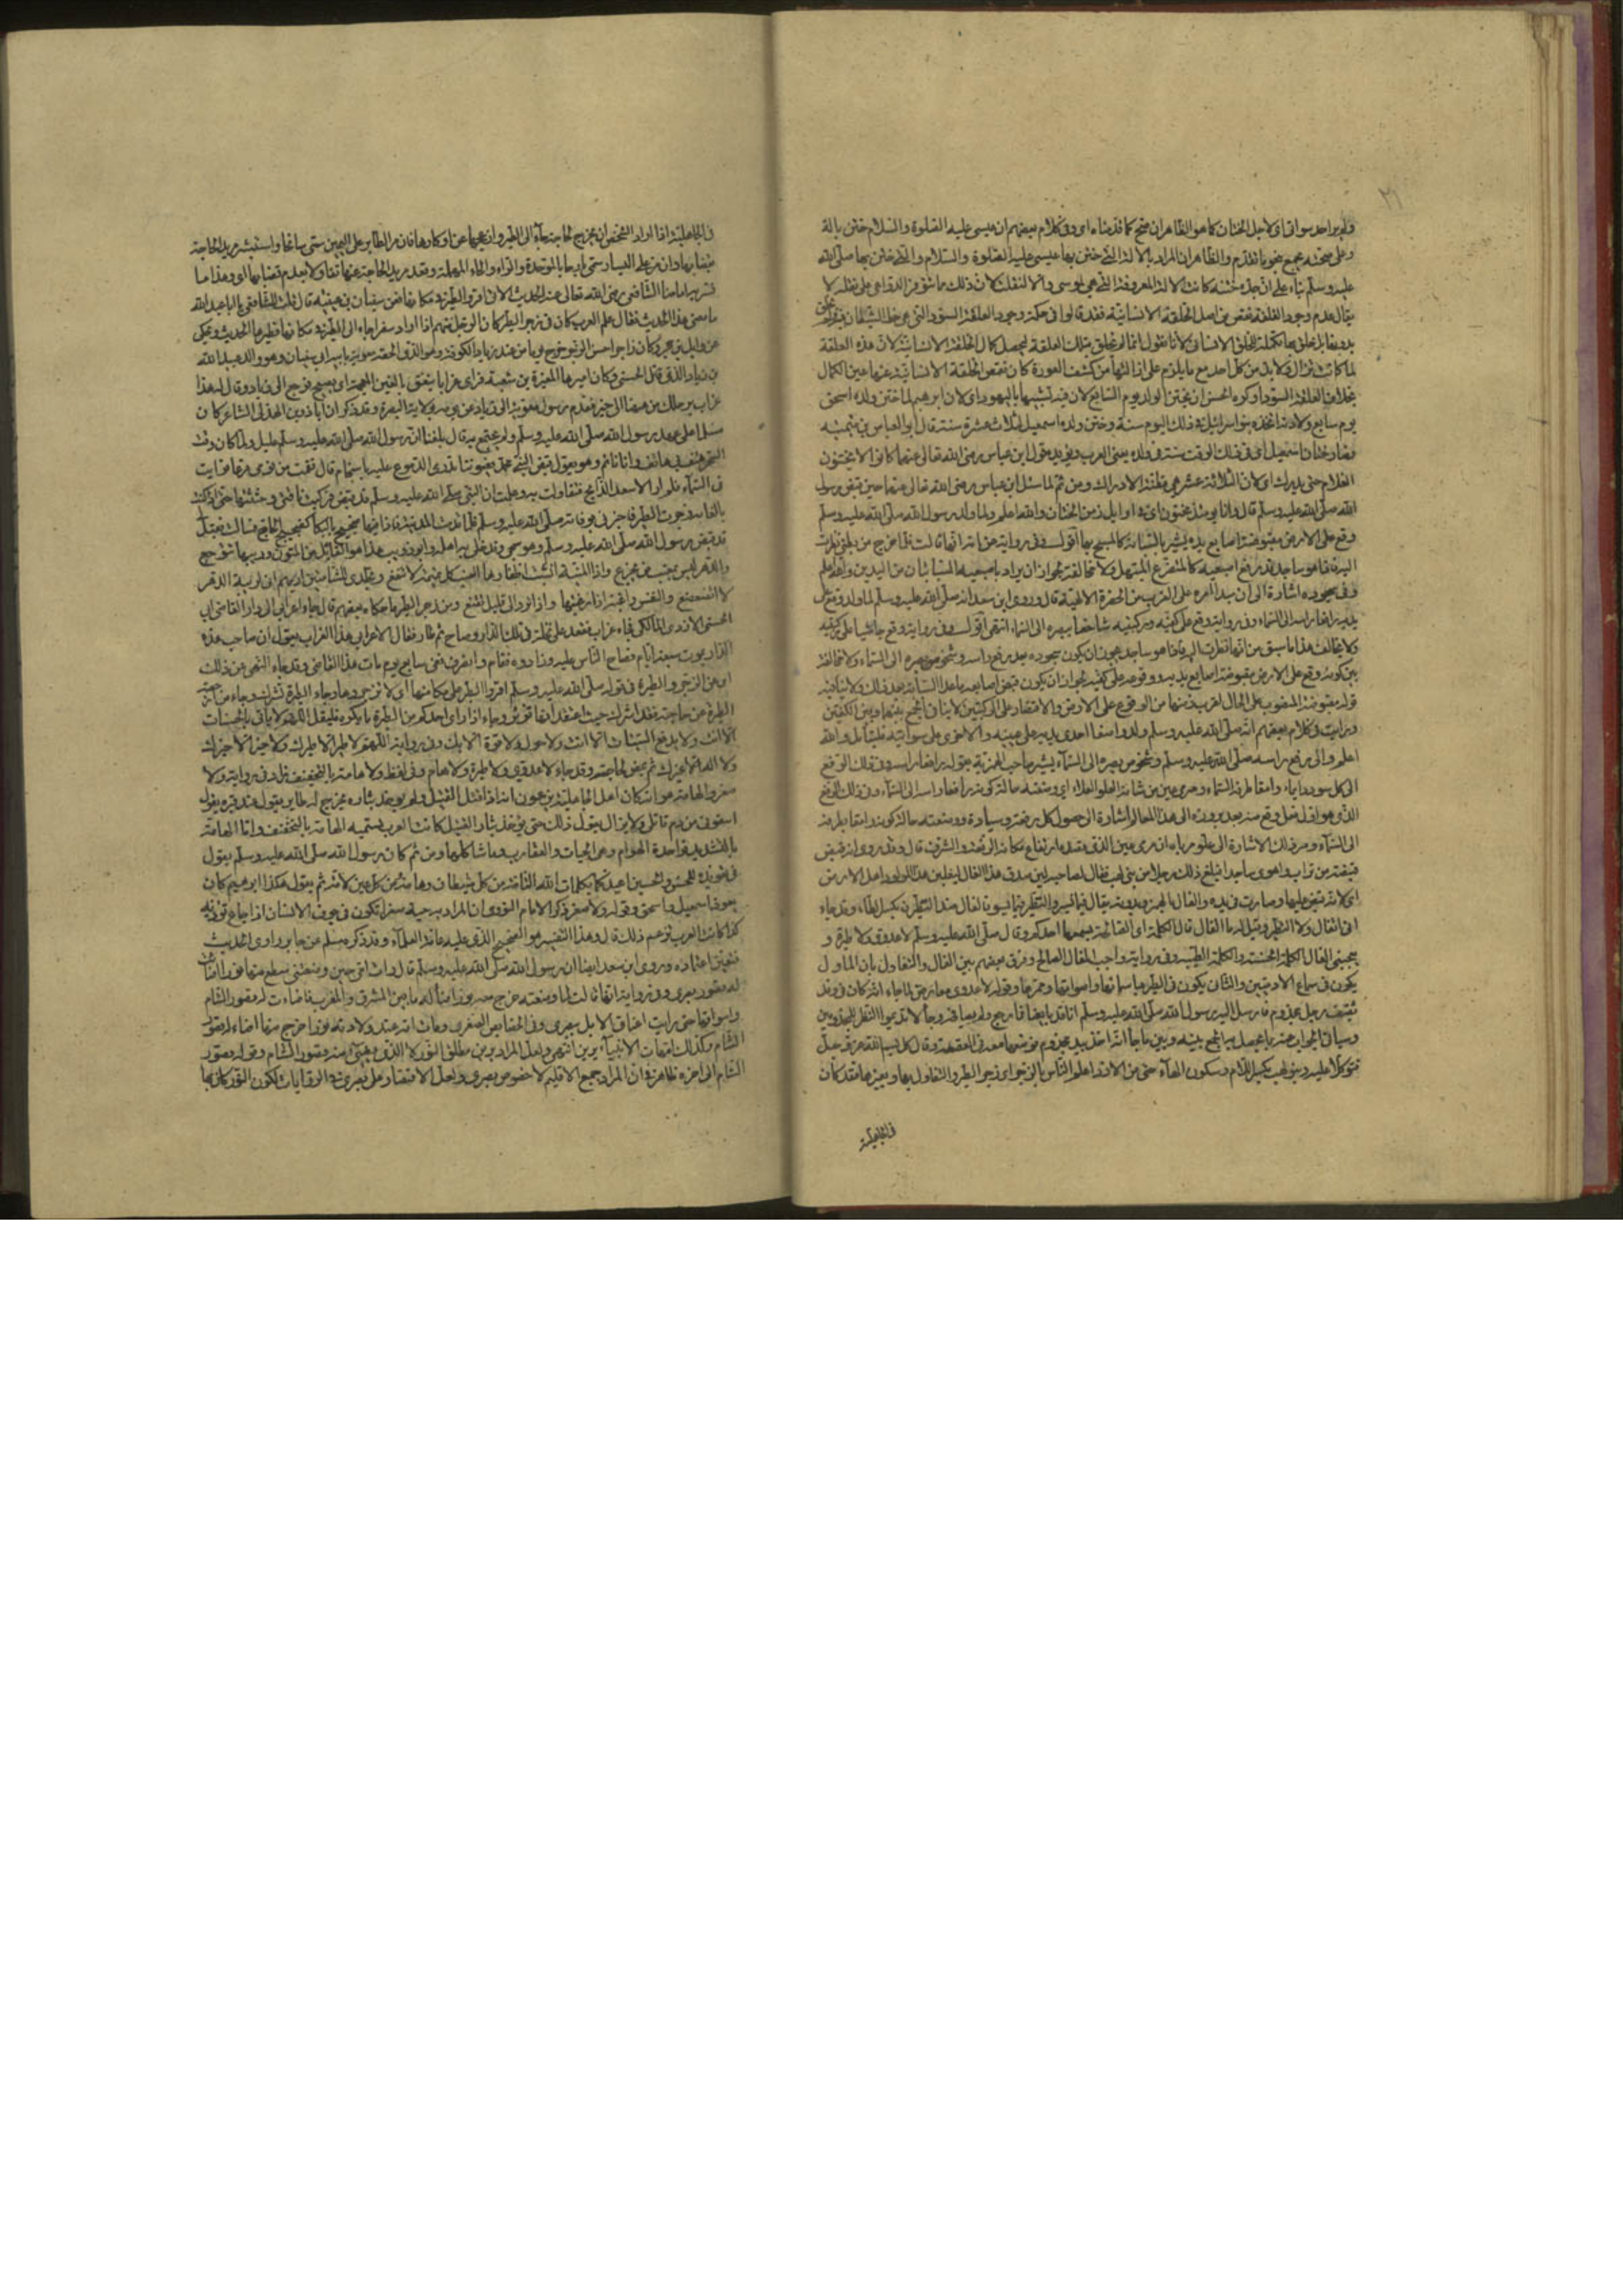 ٣١
ولم ير احد سواتى اى لاجل الختان كما هو الظاهر ان صح كما قدمناه اى وفى كلام بعضهم ان عيسى عليه الصلوة والسلام ختن بالة
وعلى صحته يجمع بنحو ما تقدم والظاهر ان المراد بالالة التى ختن بها عيسى عليه الصلوة والسلام والتى ختن بها صلى الله
عليه وسلم بناء على ان جده ختنه كانت الالة المعروفة التى هى الموسى والا لنقلت لان ذلك مما تتوفر الدواعى على نقله لا
يقال عدم وجود القلفة نقص من اصل الخلقة الانسانية فقد قالوا فى حكمة وجود العلقة السودا التى هى حظ الشيطان
بدونها بل خلق بها تكملة للخلق الانسانى لانا نقول انما لم يخلق بتلك العلقة ليحصل كمال الخلقة الانسانية لان هذه العلقة
لما كانت تزال ولا بد من كل احد مع ما يلزم على ازالتها من كشف العورة كان نقص الخلقة الانسانية عنها عين الكمال
بخلاف العلقة السودا وكره الحسن ان يختن الولد يوم السابع لان فيه تشبها باليهود اى لان ابرهيم لما ختن ولده اسحق
يوم سابع ولادته اتخذه بنو اسرائيل فى ذلك اليوم سنة وختن ولده اسمعيل لثلاث عشرة سنة قال ابو العباس بن تيمية
فصار ختان اسمعيل اى فى ذلك الوقت سنة فى ولده يعنى العرب ويؤيده قول ابن عباس رضى الله تعالى عنهما كانوا لا يختنون
الغلام حتى يدرك اى لان الثلاثة عشر هى مظنة الادراك ومن ثم لما سئل ابن عباس رضى الله تعالى عنهما حين قبض رسول
الله صلى الله عليه وسلم قال وانا يومئذ مختون اى فى اوايل زمن الختان والله اعلم ولما ولد رسول الله صلى الله عليه وسلم
وقع على الارض مقبوضة اصابع يده يشير بالسبابة كالمسبح بها اقول وفى رواية عن امه انها قالت لما خرج من بطنى نظرت
اليه فاذا هو ساجد قد رفع اصبعيه كالمتضرع المبتهل ولا مخالفة لجواز ان يراد باصبعيه السبابتان من اليدين والله اعلم
وفى سجوده اشارة الى ان مبدا امره على القرب من الحضرة الالهية قال وروى ابن سعد انه صلى الله عليه وسلم لما ولد وقع على
يديه رافعا راسه الى السماء وفى رواية وقع على كفيه وركبتيه شاخصا ببصره الى السماء انتهى اقول وفى رواية وقع جاثيا على ركبتيه
ولا يخالف هذا ما سبق من انها نظرت اليه فاذا هو ساجد لجواز ان يكون سجوده بعد رفع راسه وشخوص بصره الى السماء ولا مخالفة
بين كونه وقع على الارض مقبوضة اصابع يديه ووقوعه على كفيه لجواز ان يكون قبض اصابعه ما عدا السبابة بعد ذلك ولا ينافيه
قوله مقبوضة المنصوب على الحال لقرب زمنها من الوقوع على الارض والاقتصار على الركبتين لا ينافى الجمع بينهما وبين الكفين
ورايت فى كلام بعضهم انه صلى الله عليه وسلم ولد واضعا احدى يديه على عينيه والاخرى على سواتيه فليتامل والله
اعلم والى رفع راسه صلى الله عليه وسلم وشخوص بصره الى السماء يشير صاحب الهمزية بقوله رافعا راسه وفى ذلك الرفع
الى كل سودد ايماء رامقا طرفه السماء ومرمى عين من شانه العلو العلاء اى وضعته حالة كونه رافعا راسه الى السماء وفى ذلك الرفع
الذى هو اول فعل وقع منه بعد بروزه الى هذا العالم اشارة الى حصول كل رفعة وسيادة ووضعته حالة كونه رامقا بطرفه
الى السماء ومن ذلك الاشارة الى علو مرماه اذ مرمى عين الذى قصده ارتفاع مكانه الرفعة والشرف قال وقد روى انه قبض
قبضة من تراب واهوى ساجدا فبلغ ذلك رجلا من بنى لهب فقال لصاحبه لئن صدق هذا الفال ليغلبن هذا المولود اهل الارض
اى لانه قبض عليها وصارت فى يده والفال بالهمز وبدونه يقال فيما يسر والتطير فيما يسوء فالفال ضد التطير بكسر الطاء وقد جاء
انى اتفال ولا اتطير وقيل له ما الفال قال الكلمة اى الصالحة يسمعها احدكم وقال صلى الله عليه وسلم لا عدوى ولا طيرة و
يعجبنى الفال الكلمة الحسنة والكلمة الطيبة وفى رواية واحب الفال الصالح وفرق بعضهم بين الفال والتفاول بان الاول
يكون فى سماع الادميين والثانى يكون فى الطير باسمائها واصواتها وممرها وقوله لا عدوى معارض لما جاء انه كان فى وفد
ثقيف رجل مجذوم فارسل اليه رسول الله صلى الله عليه وسلم انا قد بايعناك فارجع ولم يصافحه وجاء لا تديموا النظر للمجذومين
وسياتى الجواب عنه بما يحصل به الجمع بينه وبين ما جاء انه اخذ بيد مجذوم فوضعها معه فى القصعة وقال كل بسم الله عز وجل
وتوكلا عليه وبنو لهب بكسر اللام وسكون الهاء حى من الازد اعلم الناس بالزجر اى زجر الطير والتفاول بها وبغيرها فقد كان
فى الجاهلية
فى الجاهلية اذا اراد الشخص ان يخرج لحاجة جاء الى الطير وازعجها عن اوكارها فان مر الطاير على اليمين سمى سانحا واستبشر مريد الحاجة
بقضايها وان مر على اليسار سمى بارحا بالموحدة والراء والحاء المهملة وقعد مريد الحاجة عنها تفاولا بعدم قضايها اى وهذا ما
فسر به امامنا الشافعى رضى الله تعالى عنه الحديث الاتى اقروا الطير فى مكاناتها فعن سفيان بن عيينة قال قلت للشافعى يا ابا عبد الله
ما معنى هذا الحديث فقال علم العرب كان فى زجر الطير كان الرجل منهم اذا اراد سفرا جاء الى الطير فى مكاناتها فطيرها الحديث ويحكى
عن وايل بن حجر وكان زاجرا حسن الزجر خرج يوما من عند زياد بالكوفة وهو الذى الحقه معوية بابيه ابى سفيان وهو والد عبيد الله
بن زياد الذى قتل الحسين وكان اميرها المغيرة بن شعبة فراى غرابا ينغق بالغين المعجمة اى يصيح فرجع الى زياد وقال له هذا
غراب يرحلك من هاهنا الى خير فقدم رسول معوية الى زياد من يومه بولاية البصرة وقد ذكر ان ابا ذويب الهذلى الشاعر كان
مسلما على عهد رسول الله صلى الله عليه وسلم ولم يجتمع به قال بلغنا ان رسول الله صلى الله عليه وسلم عليل ولما كان وقت
السحر هتف بى هاتف وانا نائم وهو يقول قبض النبى محمد فعيوننا تذرى الدموع عليه بالسجام قال فقمت من نومى فزعا فنظرت
فى السماء فلم ار الا سعد الذابح فتفاولت به وعلمت ان النبى صلى الله عليه وسلم قد قبض فركبت ناقتى وحثثتها حتى اذا كنت
بالغابة زجرت الطير فاخبرنى بوفاته صلى الله عليه وسلم فلما قدمت المدينة فاذا فيها ضجيج بالبكا كضجيج الحاج فسالت فقيل
قد قبض رسول الله صلى الله عليه وسلم وهو مسجى وقد خلى به اهله وابو ذويب هذا هو القائل امن المنون وريبها تتوجع
والدهر ليس بمعتب من يجزع واذا المنية انشبت اظفارها الفيت كل تميمة لا تنفع وتجلدى للشامتين اريهم انى لريب الدهر
لا اتضعضع والنفس راغبة اذا رغبتها واذا ترد الى قليل تقنع ومن زجر الطير ما حكاه بعضهم قال جاء اعرابى الى دار القاضى ابى
الحسين الازدى المالكى فجاء غراب فقعد على نخلة فى تلك الدار وصاح ثم طار فقال الاعرابى هذا الغراب يقول ان صاحب هذه
الدار يموت بعد سبعة ايام فصاح الناس عليه وزجروه فقام وانصرف ففى سابع يوم مات هذا القاضى وقد جاء النهى عن ذلك
اى عن الزجر والطيرة فى قوله صلى الله عليه وسلم اقروا الطير على مكاناتها اى لا تزجروها وجاء الطيرة شرك وجاء من ارجعته
الطيرة عن حاجته فقد اشرك حيث اعتقد انها تؤثر وجاء اذا راى احدكم من الطيرة ما يكره فليقل اللهم لا ياتى بالحسنات
الا انت ولا يدفع السيئات الا انت ولا حول ولا قوة الا بك وفى رواية اللهم لا طير الا طيرك ولا خير الا خيرك
ولا اله غيرك ثم يمضى لحاجته وقد جاء لا عدوى ولا طيرة ولا هام وفى لفظ ولا هامة بالتخفيف زاد فى رواية ولا
صفر والهامة هو انه كان اهل الجاهلية يزعمون انه اذا قتل القتيل ولم يوخذ بثاره يخرج له طاير يقول عند قبره
اسقونى من دم قاتلى ولا يزال يقول ذلك حتى يؤخذ بثار القتيل كانت العرب تسميه الهامة بالتخفيف واما الهامة
بالتشديد فواحدة الهوام وهى الحيات والعقارب وما شاكلهما ومن ثم كان رسول الله صلى الله عليه وسلم يقول
فى تعويذه للحسن والحسين اعيذكما بكلمات الله التامة من كل شيطان وهامة ومن كل عين لامة ثم يقول هكذا ابرهيم كان
يعوذ اسمعيل واسحق وقوله ولا صفر ذكر الامام النووى ان المراد به حية صفرا تكون فى جوف الانسان اذا جاع تؤذيه
كذا كانت العرب تزعم ذلك قال وهذا التفسير هو الصحيح الذى عليه عامة العلماء وقد ذكره مسلم عن جابر راوى الحديث
فتعين اعتماده وروى ابن سعد ايضا ان رسول الله صلى الله عليه وسلم قال رات امى حين وضعتنى سطع منها نور اضات
له قصور بصرى وفى رواية انها قالت لما وضعته خرج معه نور اضاء له ما بين المشرق والمغرب فاضاءت له قصور الشام
واسواقها حتى رايت اعناق الابل ببصرى وفى الخصايص الصغرى ورات امه عند ولادته نورا خرج منها اضاء له قصور
الشام وكذلك امهات الانبياء يرين انتهى ولعل المراد يرين مطلق النور لا الذى تضىء منه قصور الشام وقوله قصور
الشام الى اخره ظاهره ان المراد جميع الاقليم لا خصوص بصرى ولعل الاقتصار على بصرى فى الروايات لكون النور كان بها